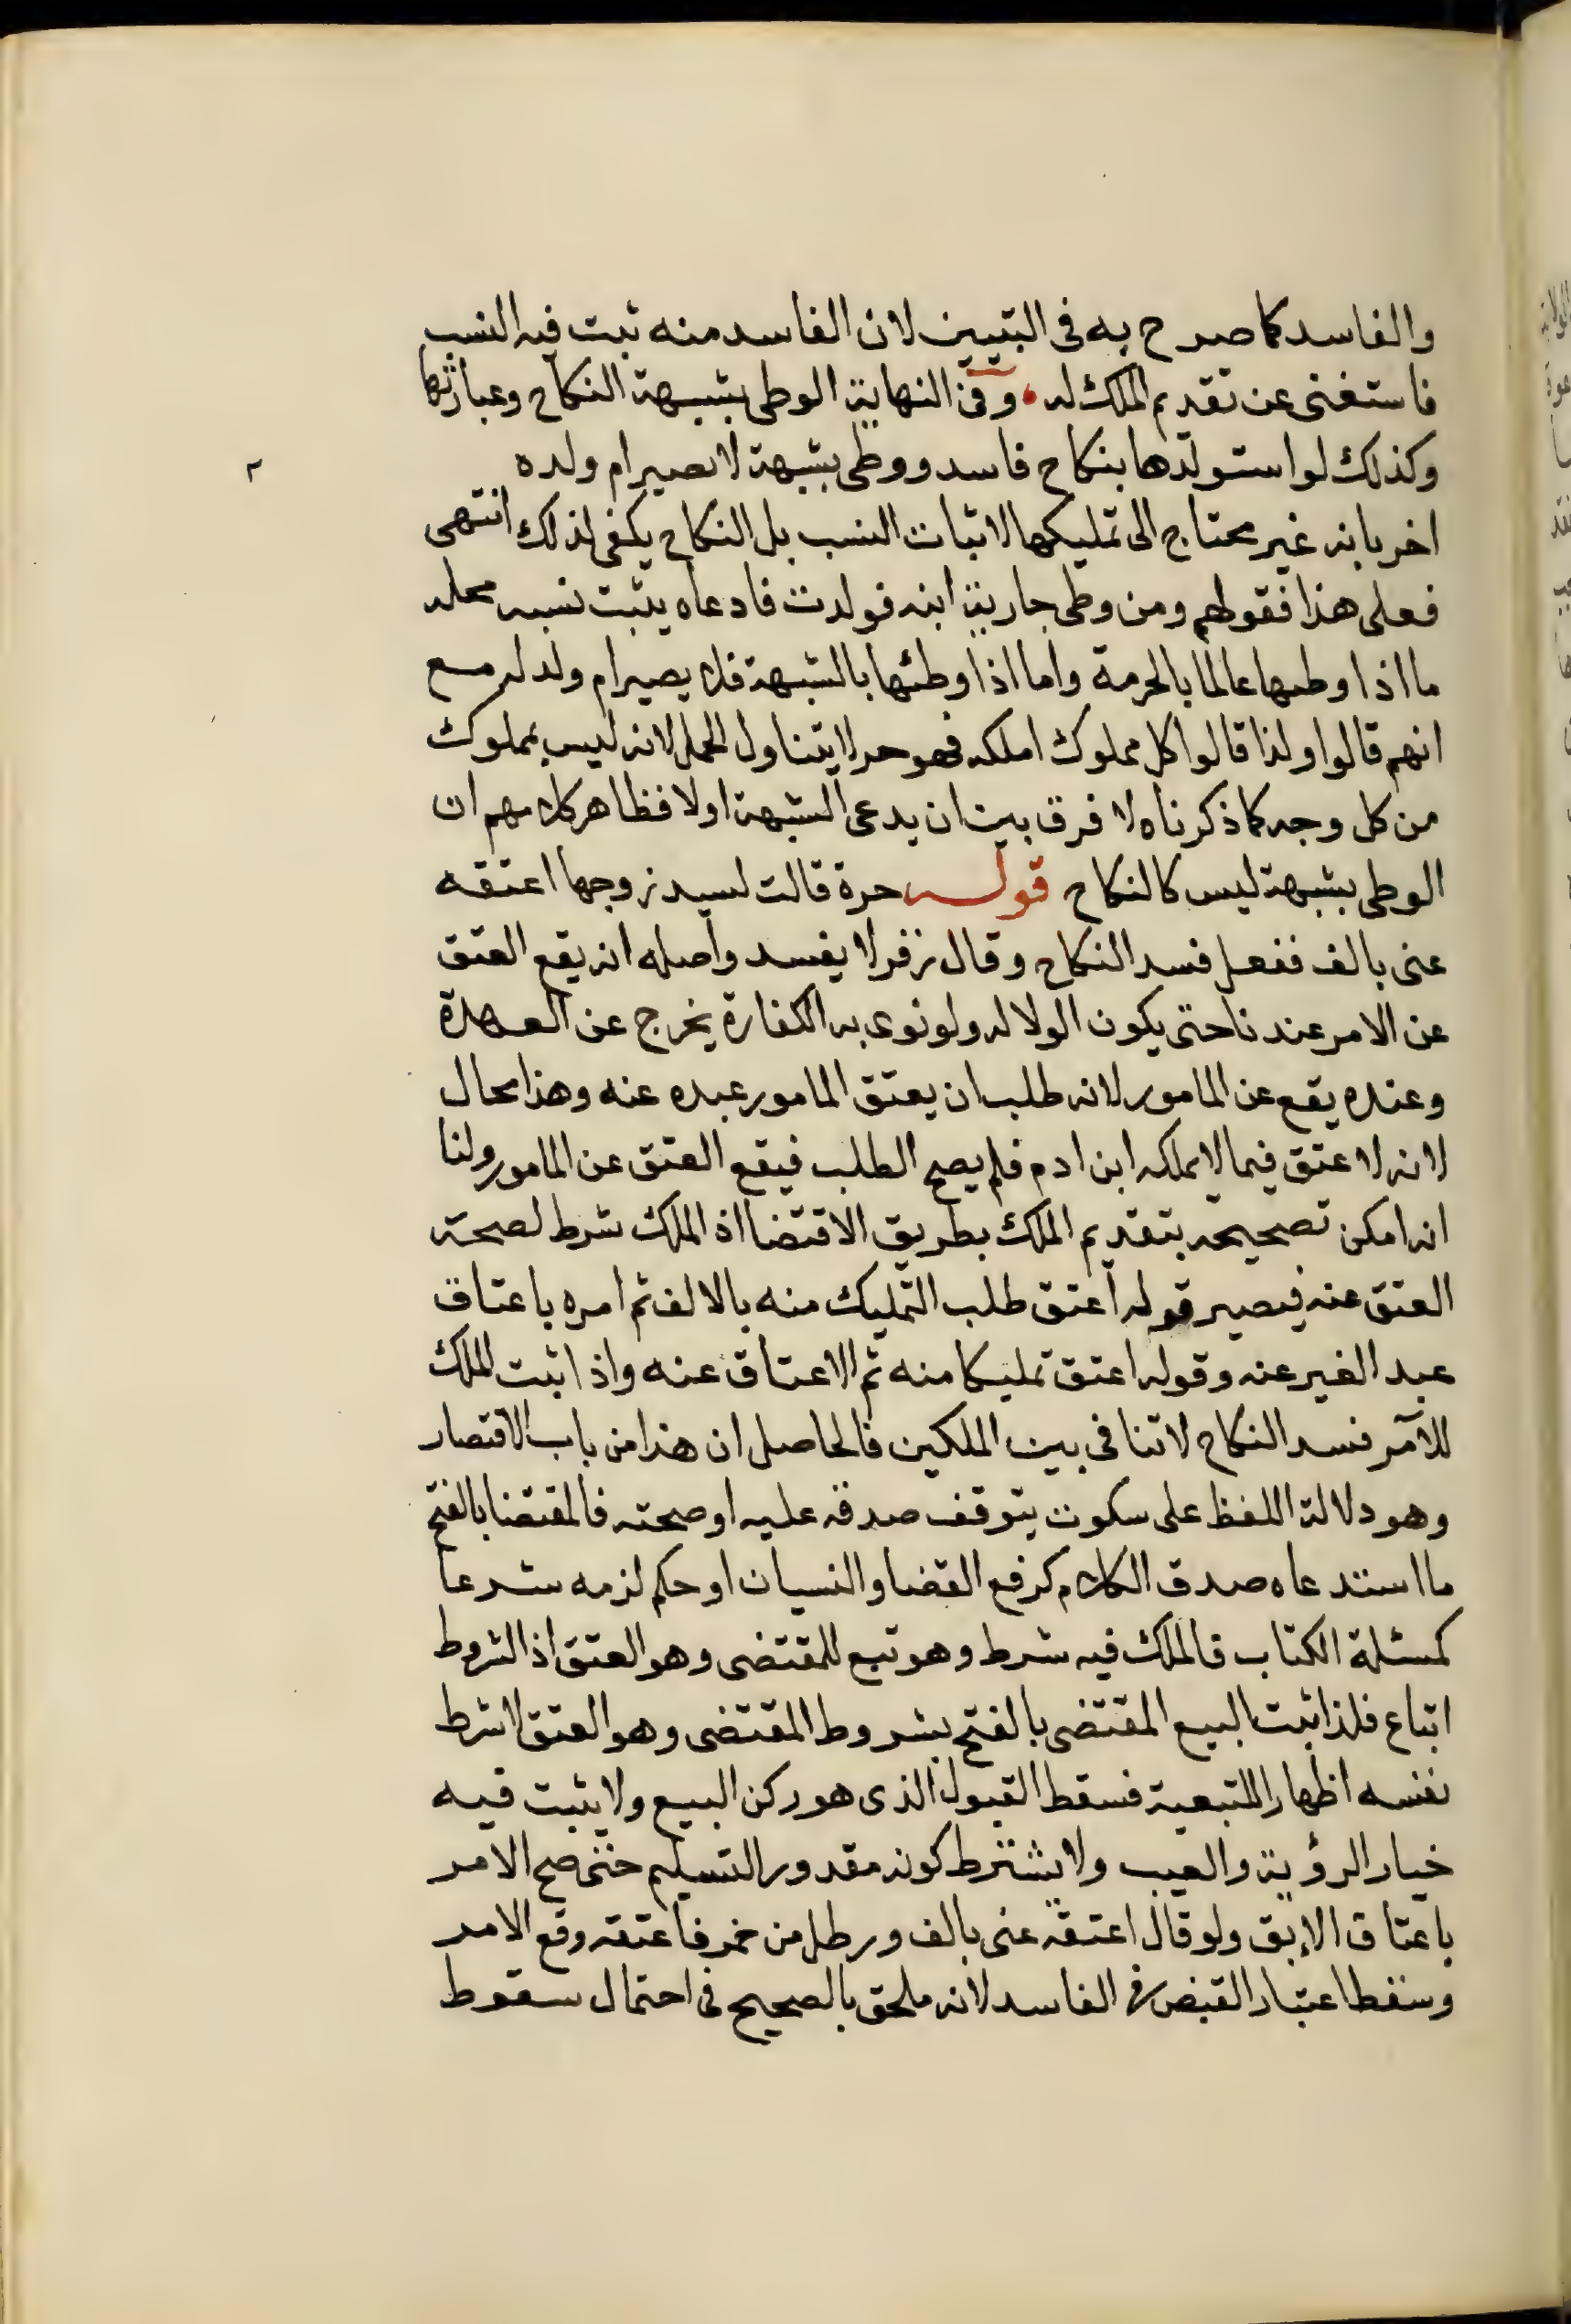 والفاسد كما صرح به فى التبيين لان الفاسد منه ثبت فيه النسب
فاستغنى عن تقديم الملك له وفى النهاية الوطى بشبهة النكاح وعبارتها
وكذلك لو استولدها بنكاح فاسد ووطى بشبهة لا تصير ام ولده
اخر بانه غير محتاج الى تمليكها لاثبات النسب بل النكاح يكفى لذلك انتهى
فعلى هذا فقولهم ومن وطى جارية ابنه فولدت فادعاه يثبت نسبه محله
ما اذا وطئها عالما بالحرمة واما اذا وطئها بالشبهة فلا يصير ام ولد له مع
انهم قالوا ولذا قالوا كل مملوك املكه فهو حر لا يتناول الحمل لانه ليس بمملوك
من كل وجه كما ذكرناه لا فرق بين ان يدعى الشبهة اولا فظاهر كلامهم ان
الوطى بشبهة ليس كالنكاح قوله حرة قالت لسيد زوجها اعتقه
عنى بالف ففعل فسد النكاح وقال زفر لا يفسد واصله انه يقع العتق
عن الامر عندنا حتى يكون الولا له ولو نوى به الكفارة يخرج عن العهدة
وعنده يقع عن المامور لانه طلب ان يعتق المامور عبده عنه وهذا محال
لانه لا عتق فيما لا يملكه ابن ادم فلم يصح الطلب فيقع العتق عن المامور ولنا
انه امكن تصحيحه بتقديم الملك بطريق الاقتضا اذ الملك شرط لصحة
العتق عنه فيصير قوله اعتق طلب التمليك منه بالالف ثم امره باعتاق
عبد الغير عنه وقوله اعتق تمليكا منه ثم الاعتاق عنه واذا ثبت الملك
للآمر فسد النكاح لاتنافى بين الملكين فالحاصل ان هذا من باب الاقتصار
وهو دلالة اللفظ على سكوت يتوقف صدقه عليه او صحته فالمقتضا بالفتح
ما استدعاه صدق الكلام كرفع القضا والنسيان او حكم لزمه شرعا
كمسئلة الكتاب فالملك فيه شرط وهو تبع للمقتضى وهو العتق اذ الشروط
اتباع فلذا ثبت البيع المقتضى بالفتح بشروط المقتضى وهو العتق لا شرط
نفسه اظهارا للتبعية فسقط القبول الذى هو ركن البيع ولا يثبت فيه
خيار الرؤية والعيب ولا يشترط كونه مقدور التسليم حتى صح الامر
باعتاق الابق ولو قال اعتقه عنى بالف ورطل من خمر فاعتقه وقع الامر
وسقط اعتبار القبض فى الفاسد لانه ملحق بالصحيح فى احتمال سقوط